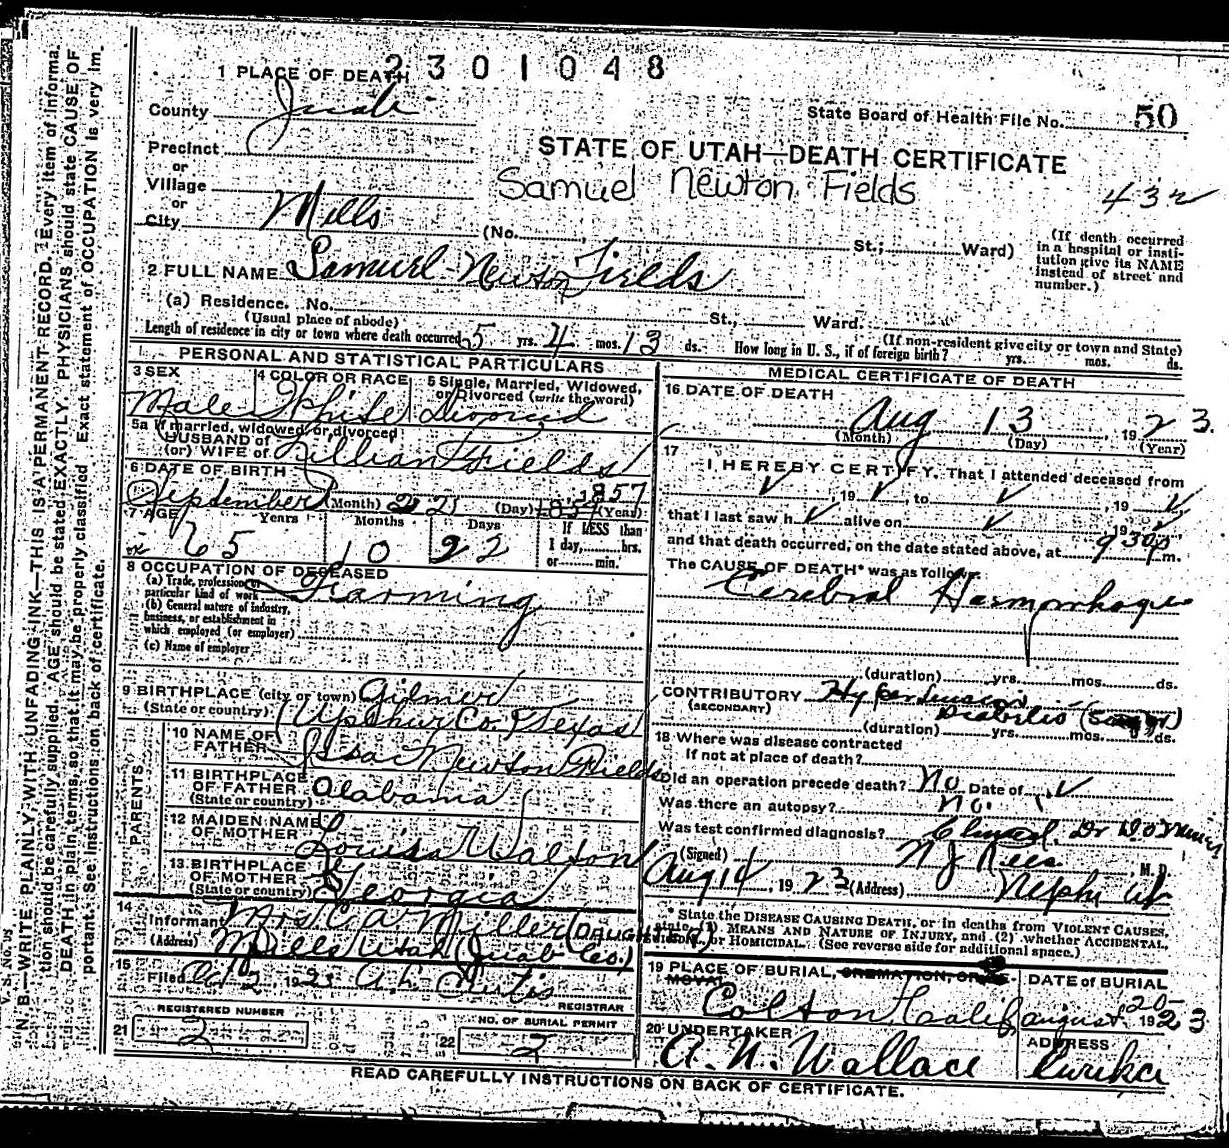 2301048
1 PLACE OF DEATH
County Juab
State Board of Health File No. 50
Precinct
or
Village
or
City Mills
STATE OF UTAH—DEATH CERTIFICATE
Samuel Newton Fields
432
(No. St.; Ward)
(If death occurred in a hospital or insti-
tution give its NAME
instead of street and
number.)
2 FULL NAME Samuel Newton Fields
(a) Residence. No. St., Ward.
(Usual place of abode) (If non-resident give city or town and State)
Length of residence in city or town where death occurred 5 yrs. 4 mos. 13 ds. How long in U. S., if of foreign birth? yrs. mos. ds.
PERSONAL AND STATISTICAL PARTICULARS
3 SEX
Male
4 COLOR OR RACE
White
5 Single, Married, Widowed,
or Divorced (write the word)
Divorced
5a If married, widowed, or divorced
HUSBAND of
(or) WIFE of Lillian Fields
6 DATE OF BIRTH
September (Month) 21 (Day) 1857 (Year)
7 AGE Years Months Days
65 10 22
If LESS than
1 day, hrs.
or min.
8 OCCUPATION OF DECEASED
(a) Trade, profession or
particular kind of work Farming
(b) General nature of industry,
business, or establishment in
which employed (or employer)
(c) Name of employer
9 BIRTHPLACE (city or town) Gilmer
(State or country) Upshur Co. Texas
PARENTS
10 NAME OF
FATHER Isac Newton Fields
11 BIRTHPLACE
OF FATHER Alabama
(State or country)
12 MAIDEN NAME
OF MOTHER Louisa Walton
13 BIRTHPLACE
OF MOTHER Georgia
(State or country)
14
Informant Mrs C A Miller (DAUGHTER)
(Address) Mills Utah (Juab Co.)
15
Filed Oct 2, 1923
REGISTRAR
REGISTERED NUMBER
21 2
NO. OF BURIAL PERMIT
22 2
MEDICAL CERTIFICATE OF DEATH
16 DATE OF DEATH
Aug 13, 1923.
(Month) (Day) (Year)
17
I HEREBY CERTIFY, That I attended deceased from
, 19 , to , 19
that I last saw h alive on , 19
and that death occurred, on the date stated above, at 930 p m.
The CAUSE OF DEATH* was as follows:
Cerebral Haemorrhage
(duration) yrs. mos. ds.
CONTRIBUTORY Hypertension
(SECONDARY) Diabetes
(duration) yrs. mos. ds.
18 Where was disease contracted
If not at place of death?
Did an operation precede death? No Date of
Was there an autopsy? No.
Was test confirmed diagnosis? Clinical. Dr
(Signed) M. D.
Aug 14, 1923 (Address) Nephi Ut
* State the DISEASE CAUSING DEATH, or in deaths from VIOLENT CAUSES,
state (1) MEANS AND NATURE OF INJURY, and (2) whether ACCIDENTAL,
or HOMICIDAL. (See reverse side for additional space.)
19 PLACE OF BURIAL, CREMATION, OR RE-
MOVAL
Colton Calif
DATE of BURIAL
august 20 1923
20 UNDERTAKER
A. N. Wallace
ADDRESS
Eureka
READ CAREFULLY INSTRUCTIONS ON BACK OF CERTIFICATE.
V. S. No. 
N. B.—WRITE PLAINLY WITH UNFADING INK—THIS IS A PERMANENT RECORD. Every item of informa
tion should be carefully supplied. AGE should be stated EXACTLY. PHYSICIANS should state CAUSE OF
DEATH in plain terms, so that it may be properly classified. Exact statement of OCCUPATION is very im
portant. See instructions on back of certificate.